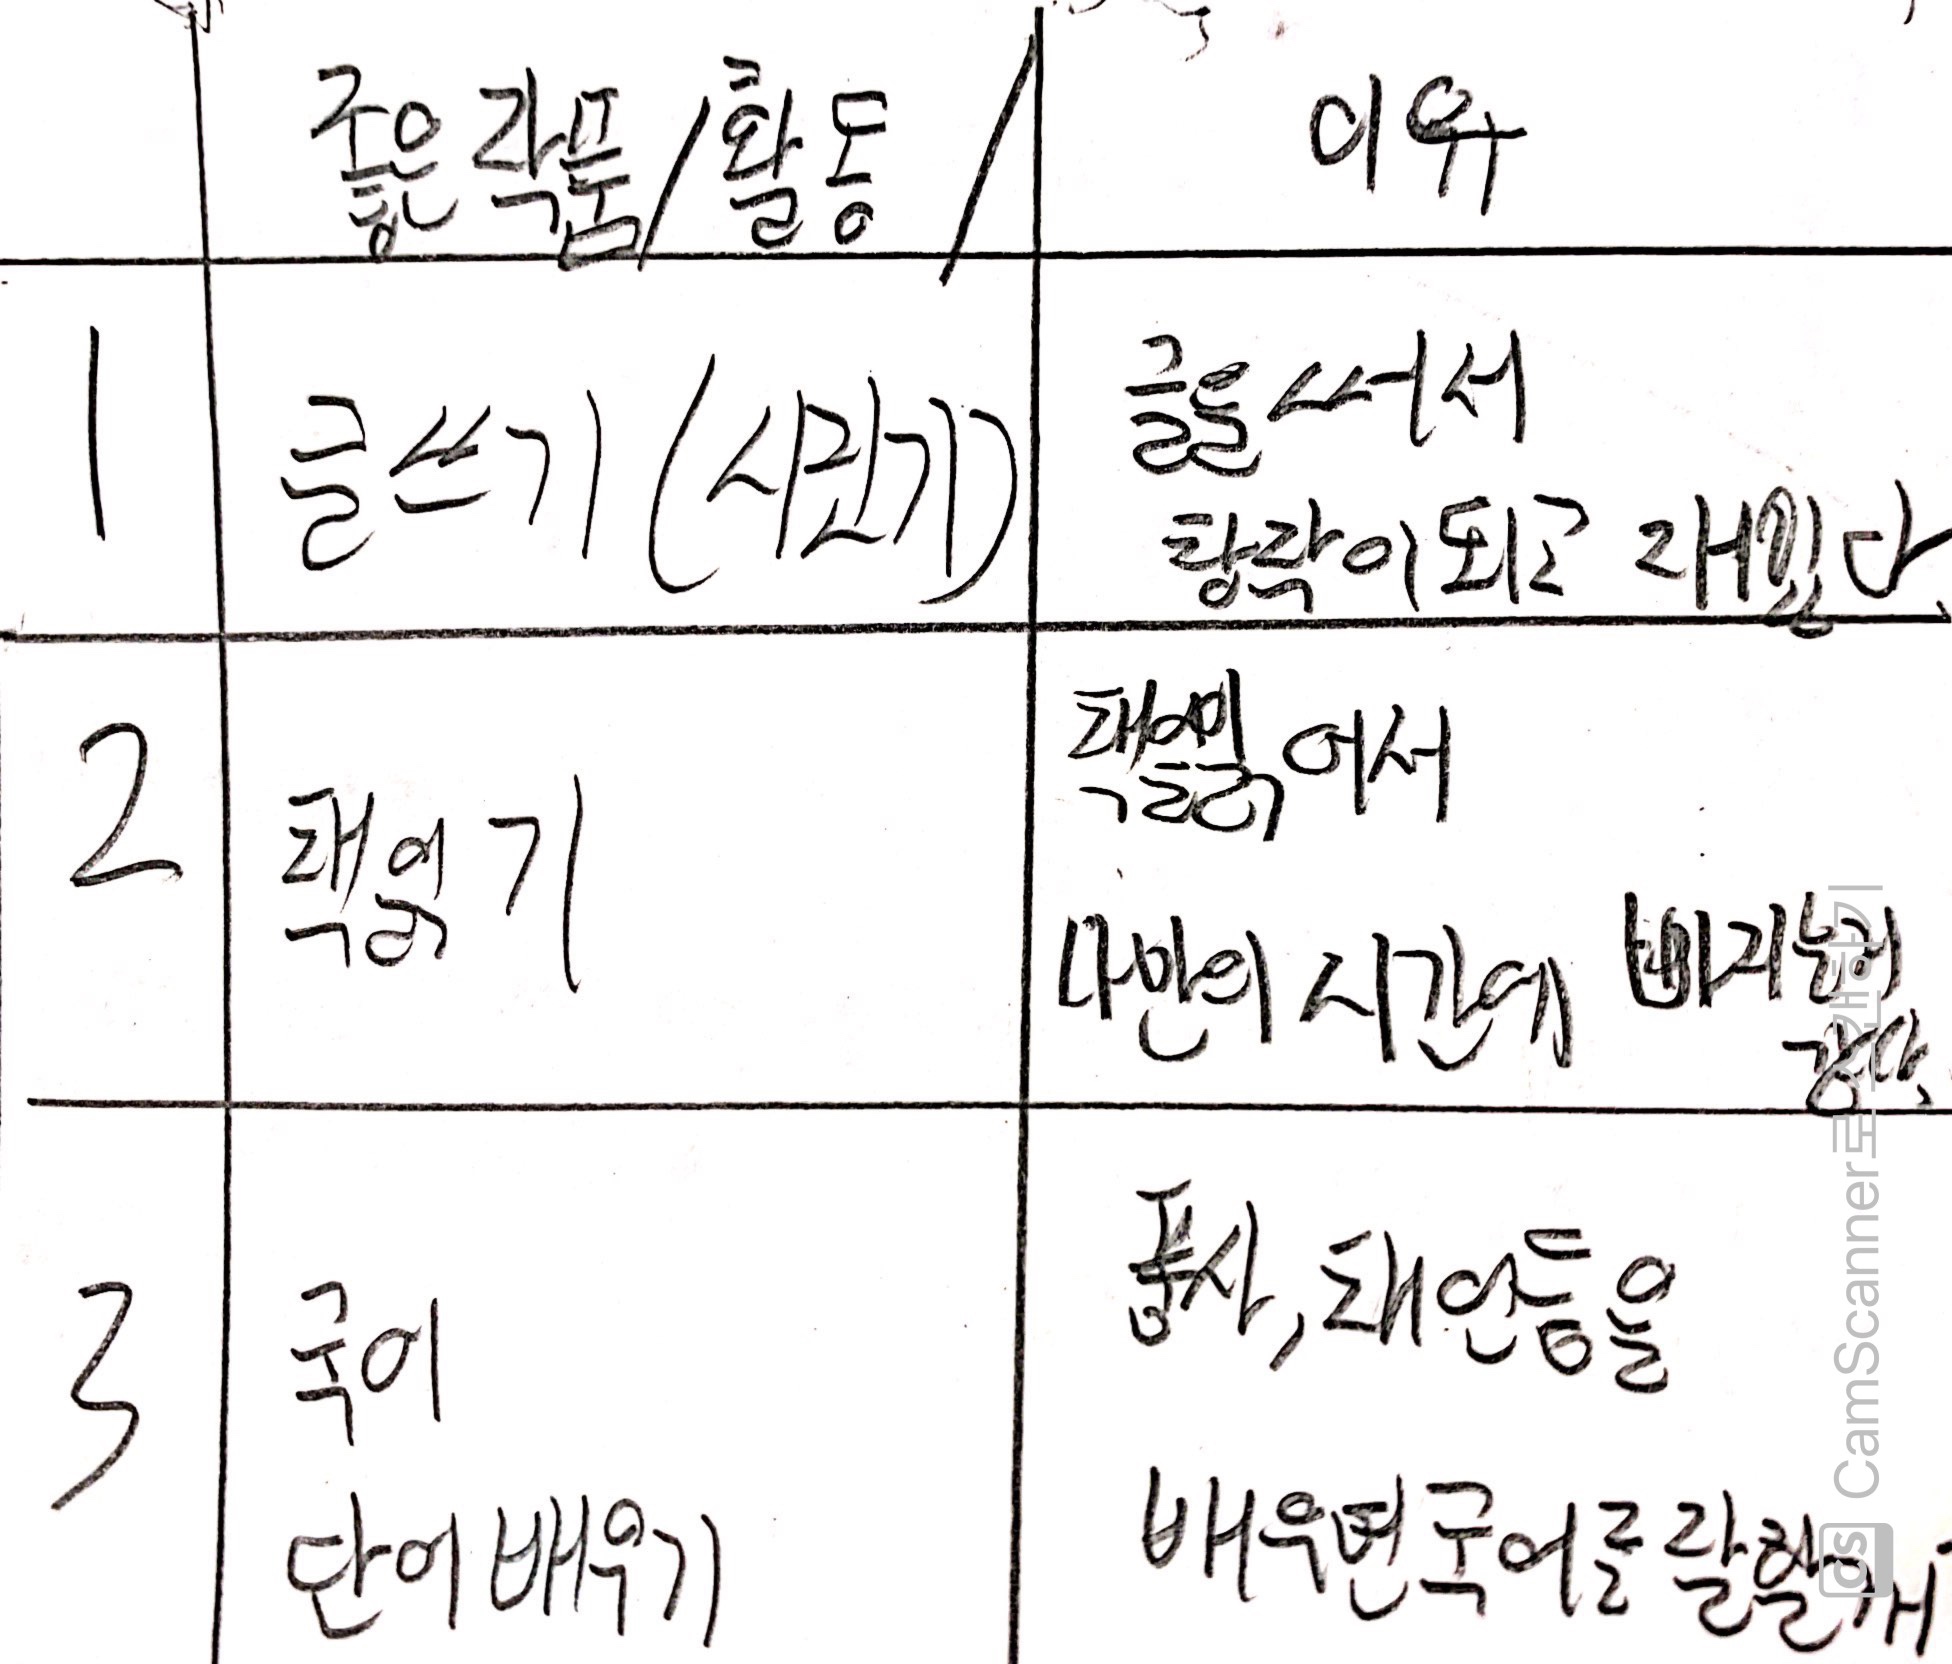 좋은 작품/활동/ 이유
1 글쓰기(시짓기) 글을 써서
창작이 되고 재밌다
2 책 읽기 책을 읽어서
나만의 시간에 빠지는거
같다.
3 국어 풍사, 채언등을
단어 배우기 배우면 국어를 잘할
CamScanner로 스캔하기